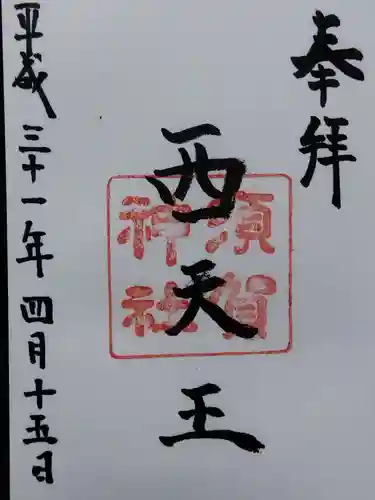 奉拝
西天王
須賀神社
平成三十一年四月十五日